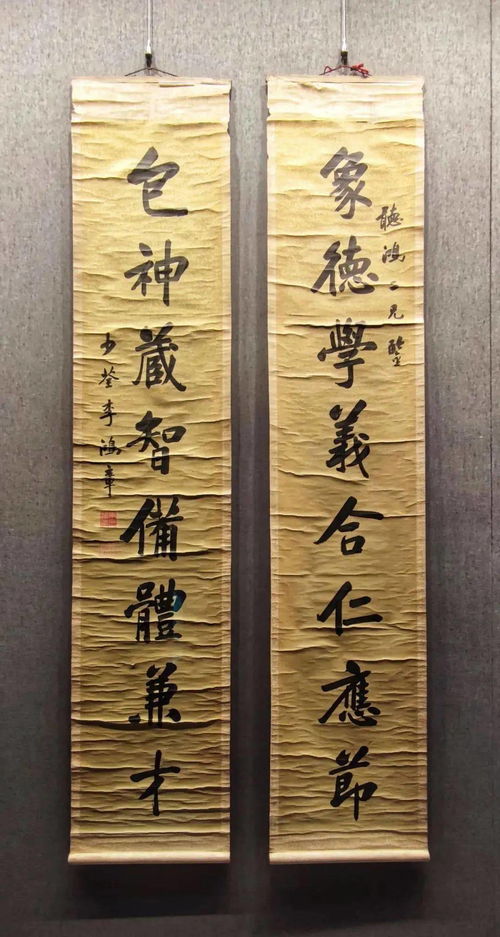 聽鴻二兄鑒
象德學義合仁應節
包神藏智備體兼才
少荃李鴻章